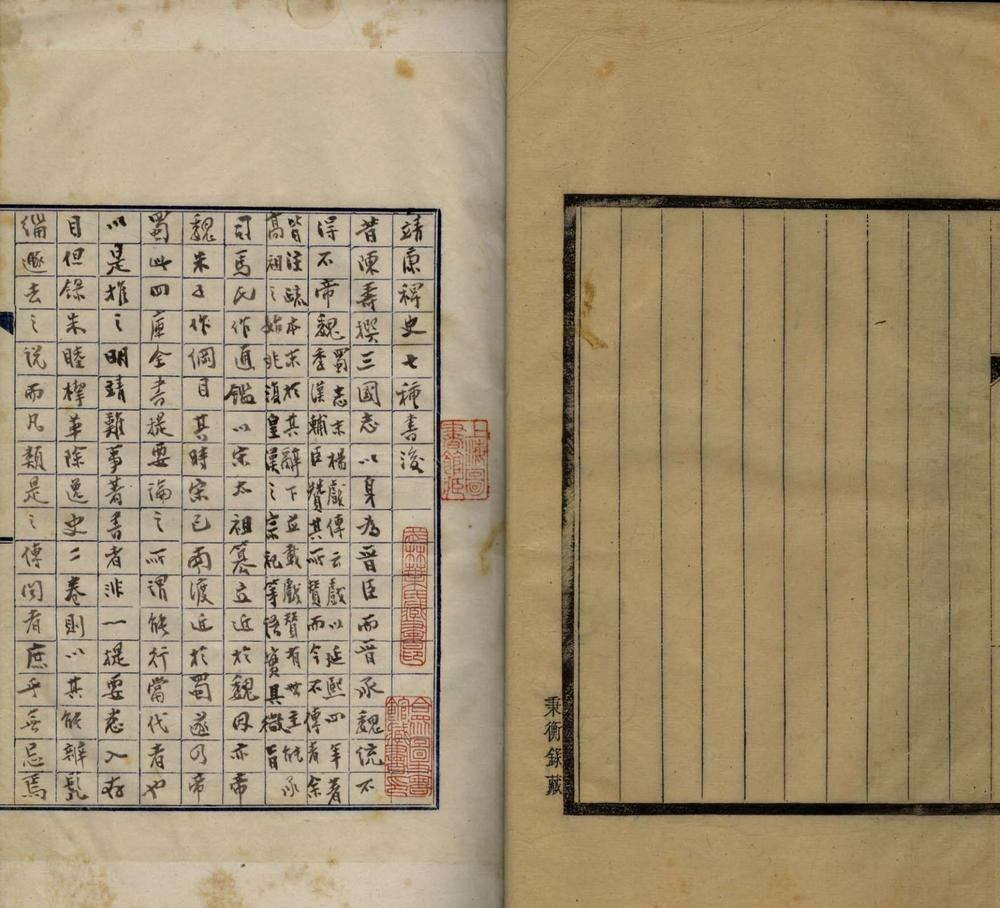 秉衡錄藏
靖康稗史七種書後
昔陳壽撰三國志以身為晉臣而晉承魏統不
得不帝魏
蜀志末楊戲傳云戲以延熙四年著
季漢輔臣贊其所贊而今不傳者余
皆注疏本末於其辭下並載戲贊有世主能承
高祖之始兆復皇漢之宗祀等語實具微旨
司馬氏作通鑑以宋太祖篡立近於魏因亦帝
魏朱子作綱目其時宋已南渡近於蜀遂乃帝
蜀此四庫全書提要論之所謂能行當代者也
以是推之明靖難事著書者非一提要悉入存
目但錄朱睦㮮革除逸史二卷則以其能辨髡
緇遯去之說而凡類是之傳聞者庶乎無忌焉
上海圖書館藏
武林葉氏藏書印
合眾圖書館藏書印